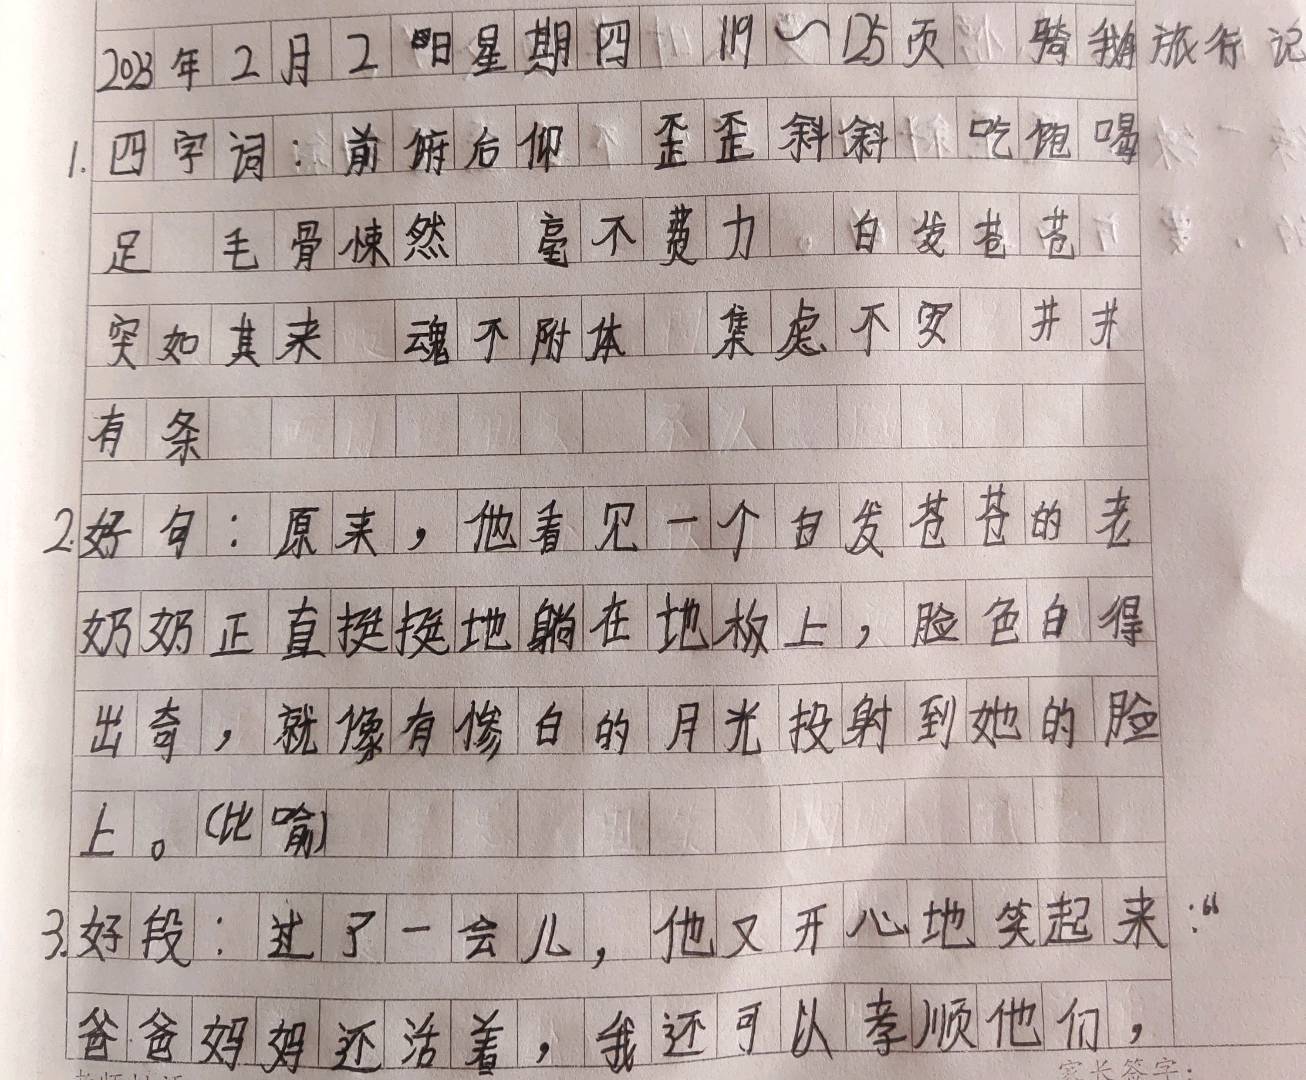 2023年2月2日星期四 119~125页 骑鹅旅行记
1.四字词：前俯后仰 歪歪斜斜 吃饱喝
足 毛骨悚然 毫不费力 白发苍苍
突如其来 魂不附体 集虑不安 井井
有条
2.好句：原来，他看见一个白发苍苍的老
奶奶正直挺挺地躺在地板上，脸色白得
出奇，就像有惨白的月光投射到她的脸
上。(比喻)
3.好段：过了一会儿，他又开心地笑起来：“
爸爸妈妈还活着，我还可以孝顺他们，
家长签字：